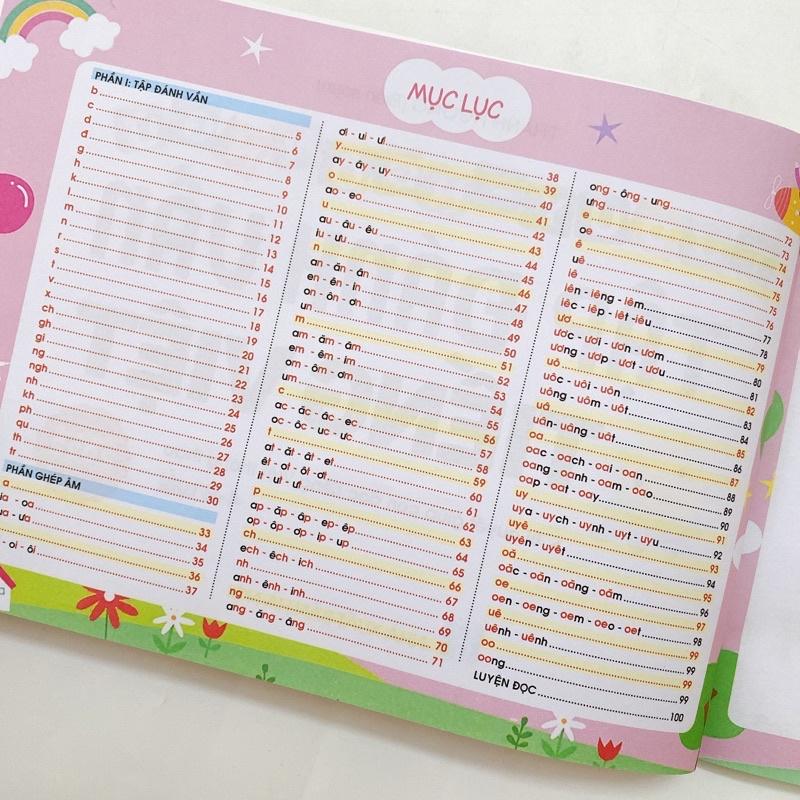 MỤC LỤC
PHẦN I: TẬP ĐÁNH VẦN
b 5
c 6
d 7
đ 8
g 9
h 10
k 11
l 12
m 13
n 14
r 15
s 16
t 17
v 18
x 19
ch 20
gh 21
gi 22
ng 23
ngh 24
nh 25
kh 26
ph 27
qu 28
th 29
tr 30
PHẦN GHÉP ÂM
a 33
- oa 34
- ưa 35
36
- oi - ôi 37
ơi - ui - ưi 38
y 39
ay - ây - uy 40
o 41
ao - eo 42
u 43
au - âu - êu 44
iu - ưu 45
n 46
an - ăn - ân 47
en - ên - in 48
on - ôn - ơn 49
un 50
m 51
am - ăm - âm 52
em - êm - im 53
om - ôm - ơm 54
um 55
c 56
ac - ăc - âc - ec 57
oc - ôc - uc - ưc 58
t 59
at - ăt - ât - et 60
êt - ot - ôt - ơt 61
it - ut - ưt 62
p 63
ap - ăp - âp - ep - êp 64
op - ôp - ơp - ip - up 65
ch 66
ech - êch - ich 67
nh 68
anh - ênh - inh 69
ng 70
ang - ăng - âng 71
ong - ông - ung 72
ưng 73
e 74
oe 74
ê 75
uê 75
iê 76
iên - iêng - iêm 77
iêc - iêp - iêt -iêu 78
ươ 79
ươc - ươi - ươn - ươm 80
ương - ươp - ươt - ươu 81
uô 82
uôc - uôi - uôn 83
uông - uôm - uôt 84
uâ 85
uân- uâng - uât 86
oa 87
oac - oach - oai - oan 88
oang - oanh - oam - oao 89
oap - oat - oay 90
uy 91
uya - uych - uynh - uyt - uyu 92
uyê 93
uyên - uyêt 94
oă 95
oăc - oăn - oăng - oăm 96
oe 97
oen - oeng - oem - oeo - oet 98
uê 99
uênh - uênh 99
oo 99
oong 99
LUYỆN ĐỌC 100